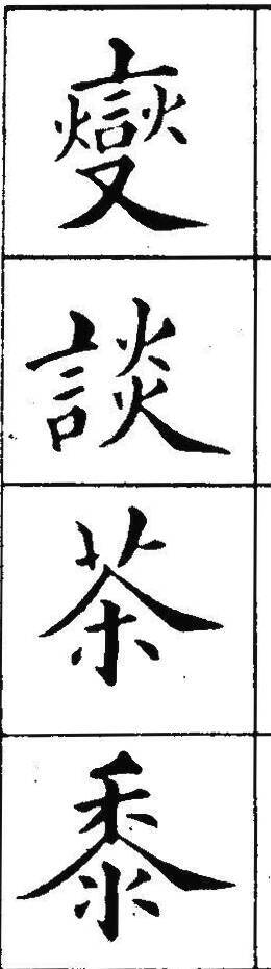 燮
談
茶
黍